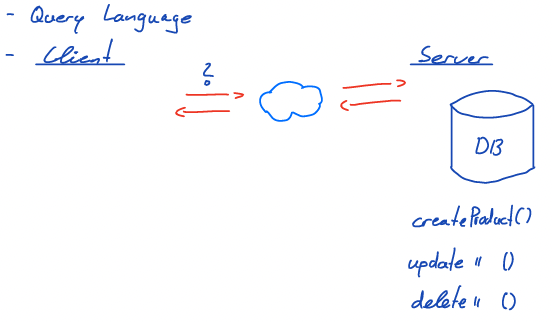 - Query Language
- Client
?
Server
DB
createProduct()
update " ()
delete " ()